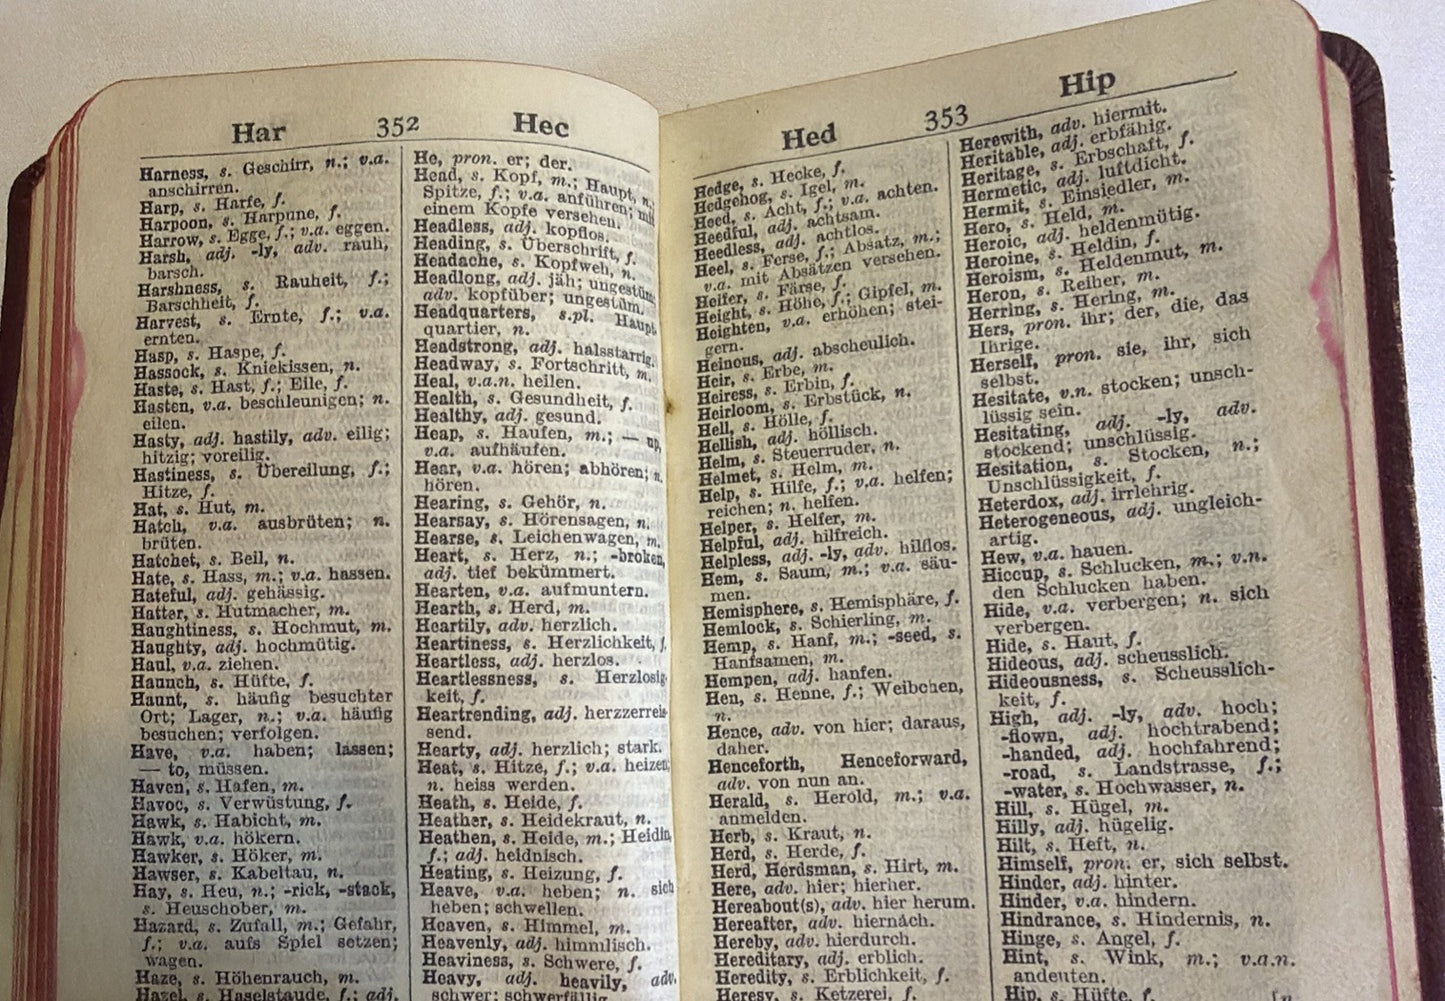 Har 352 Hec
Harness, s. Geschirr, n.; v.a.
anschirren.
Harp, s. Harfe, f.
Harpoon, s. Harpune, f.
Harrow, s. Egge, f.; v.a. eggen.
Harsh, adj. -ly, adv. rauh,
barsch.
Harshness, s. Rauheit, f.;
Barschheit, f.
Harvest, s. Ernte, f.; v.a.
ernten.
Hasp, s. Haspe, f.
Hassock, s. Kniekissen, n.
Haste, s. Hast, f.; Eile, f.
Hasten, v.a. beschleunigen; n.
eilen.
Hasty, adj. hastily, adv. eilig;
hitzig; voreilig.
Hastiness, s. Übereilung, f.;
Hitze, f.
Hat, s. Hut, m.
Hatch, v.a. ausbrüten; n.
brüten.
Hatchet, s. Beil, n.
Hate, s. Hass, m.; v.a. hassen.
Hateful, adj. gehässig.
Hatter, s. Hutmacher, m.
Haughtiness, s. Hochmut, m.
Haughty, adj. hochmütig.
Haul, v.a. ziehen.
Haunch, s. Hüfte, f.
Haunt, s. häufig besuchter
Ort; Lager, n.; v.a. häufig
besuchen; verfolgen.
Have, v.a. haben; lassen;
— to, müssen.
Haven, s. Hafen, m.
Havoc, s. Verwüstung, f.
Hawk, s. Habicht, m.
Hawk, v.a. hökern.
Hawker, s. Höker, m.
Hawser, s. Kabeltau, n.
Hay, s. Heu, n.; -rick, -stack,
s. Heuschober, m.
Hazard, s. Zufall, m.; Gefahr,
f.; v.a. aufs Spiel setzen;
wagen.
Haze, s. Höhenrauch, m.
Hazel, s. Haselstaude, f.; adj.
He, pron. er; der.
Head, s. Kopf, m.; Haupt, n.;
Spitze, f.; v.a. anführen; mit
einem Kopfe versehen.
Headless, adj. kopflos.
Heading, s. Überschrift, f.
Headache, s. Kopfweh, n.
Headlong, adj. jäh; ungestüm;
adv. kopfüber; ungestüm.
Headquarters, s.pl. Haupt
quartier, n.
Headstrong, adj. halsstarrig.
Headway, s. Fortschritt, m.
Heal, v.a.n. heilen.
Health, s. Gesundheit, f.
Healthy, adj. gesund.
Heap, s. Haufen, m.; — up,
v.a. aufhäufen.
Hear, v.a. hören; abhören; n.
hören.
Hearing, s. Gehör, n.
Hearsay, s. Hörensagen, n.
Hearse, s. Leichenwagen, m.
Heart, s. Herz, n.; -broken,
adj. tief bekümmert.
Hearten, v.a. aufmuntern.
Hearth, s. Herd, m.
Heartily, adv. herzlich.
Heartiness, s. Herzlichkeit, f.
Heartless, adj. herzlos.
Heartlessness, s. Herzlosig-
keit, f.
Heartrending, adj. herzzerreis-
send.
Hearty, adj. herzlich; stark.
Heat, s. Hitze, f.; v.a. heizen;
n. heiss werden.
Heath, s. Heide, f.
Heather, s. Heidekraut, n.
Heathen, s. Heide, m.; Heidin,
f.; adj. heidnisch.
Heating, s. Heizung, f.
Heave, v.a. heben; n. sich
heben; schwellen.
Heaven, s. Himmel, m.
Heavenly, adj. himmlisch.
Heaviness, s. Schwere, f.
Heavy, adj. heavily, adv.
schwer; schwerfällig
Hed 353 Hip
Hedge, s. Hecke, f.
Hedgehog, s. Igel, m.
Heed, s. Acht, f.; v.a. achten.
Heedful, adj. achtsam.
Heedless, adj. achtlos.
Heel, s. Ferse, f.; Absatz, m.;
v.a. mit Absätzen versehen.
Heifer, s. Färse, f.
Height, s. Höhe, f.; Gipfel, m.
Heighten, v.a. erhöhen; stei-
gern.
Heinous, adj. abscheulich.
Heir, s. Erbe, m.
Heiress, s. Erbin, f.
Heirloom, s. Erbstück, n.
Hell, s. Hölle, f.
Hellish, adj. höllisch.
Helm, s. Steuerruder, n.
Helmet, s. Helm, m.
Help, s. Hilfe, f.; v.a. helfen;
reichen; n. helfen.
Helper, s. Helfer, m.
Helpful, adj. hilfreich.
Helpless, adj. -ly, adv. hilflos.
Hem, s. Saum, m.; v.a. säu-
men.
Hemisphere, s. Hemisphäre, f.
Hemlock, s. Schierling, m.
Hemp, s. Hanf, m.; -seed, s.
Hanfsamen, m.
Hempen, adj. hanfen.
Hen, s. Henne, f.; Weibchen,
n.
Hence, adv. von hier; daraus,
daher.
Henceforth, Henceforward,
adv. von nun an.
Herald, s. Herold, m.; v.a.
anmelden.
Herb, s. Kraut, n.
Herd, s. Herde, f.
Herd, Herdsman, s. Hirt, m.
Here, adv. hier; hierher.
Hereabout(s), adv. hier herum.
Hereafter, adv. hiernach.
Hereby, adv. hierdurch.
Hereditary, adj. erblich.
Heredity, s. Erblichkeit, f.
Heresy, s. Ketzerei, f.
Herewith, adv. hiermit.
Heritable, adj. erbfähig.
Heritage, s. Erbschaft, f.
Hermetic, adj. luftdicht.
Hermit, s. Einsiedler, m.
Hero, s. Held, m.
Heroic, adj. heldenmütig.
Heroine, s. Heldin, f.
Heroism, s. Heldenmut, m.
Heron, s. Reiher, m.
Herring, s. Hering, m.
Hers, pron. ihr; der, die, das
Ihrige.
Herself, pron. sie, ihr, sich
selbst.
Hesitate, v.n. stocken; unsch-
lüssig sein.
Hesitating, adj. -ly, adv.
stockend; unschlüssig.
Hesitation, s. Stocken, n.;
Unschlüssigkeit, f.
Heterdox, adj. irrlehrig.
Heterogeneous, adj. ungleich-
artig.
Hew, v.a. hauen.
Hiccup, s. Schlucken, m.; v.n.
den Schlucken haben.
Hide, v.a. verbergen; n. sich
verbergen.
Hide, s. Haut, f.
Hideous, adj. scheusslich.
Hideousness, s. Scheusslich-
keit, f.
High, adj. -ly, adv. hoch;
-flown, adj. hochtrabend;
-handed, adj. hochfahrend;
-road, s. Landstrasse, f.;
-water, s. Hochwasser, n.
Hill, s. Hügel, m.
Hilly, adj. hügelig.
Hilt, s. Heft, n.
Himself, pron. er, sich selbst.
Hinder, adj. hinter.
Hinder, v.a. hindern.
Hindrance, s. Hindernis, n.
Hinge, s. Angel, f.
Hint, s. Wink, m.; v.a.n.
andeuten.
Hip, s. Hüfte, f.